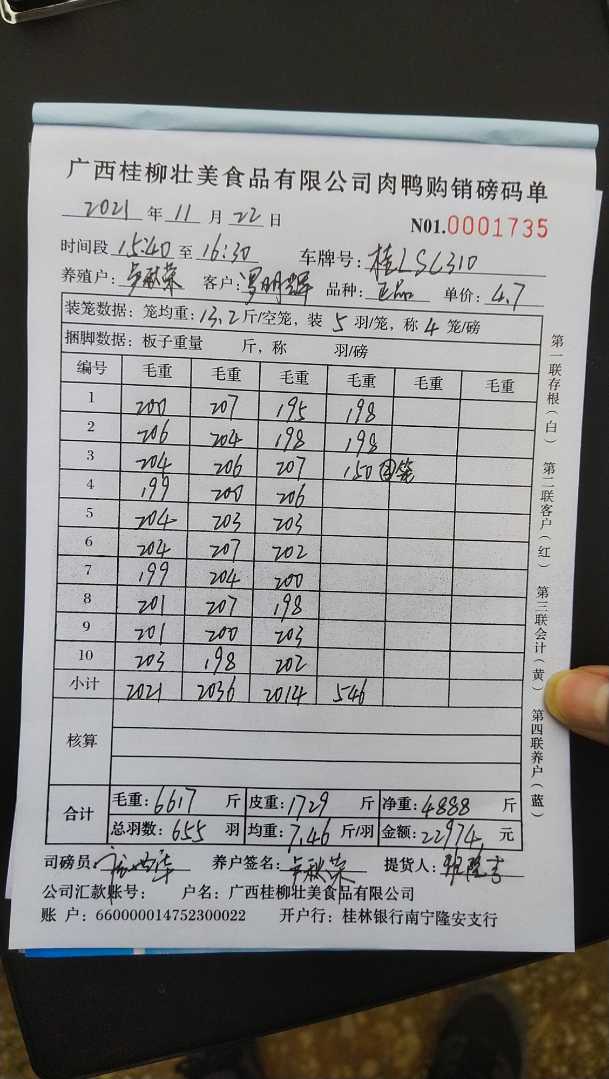 广西桂柳壮美食品有限公司肉鸭购销磅码单
2021 年 11 月 22 日 N01.0001735
时间段 15:40 至 16:30 车牌号: 桂LSC310
养殖户: 客户: 罗明辉 品种: 正品 单价: 4.7
装笼数据: 笼均重: 13.2 斤/空笼, 装 5 羽/笼, 称 4 笼/磅
捆脚数据: 板子重量 斤, 称 羽/磅
编号 毛重 毛重 毛重 毛重 毛重 毛重
1 200 207 195 198
2 206 204 198 198
3 204 206 207 150 笼
4 199 200 206
5 204 203 203
6 204 207 202
7 199 204 200
8 201 207 198
9 201 200 203
10 203 198 202
小计 2021 2036 2014 546
核算
合计 毛重: 6617 斤 皮重: 1729 斤 净重: 4888 斤
总羽数: 655 羽 均重: 7.46 斤/羽 金额: 22974 元
司磅员 养户签名: 提货人:
公司汇款账号: 户名: 广西桂柳壮美食品有限公司
账 户: 660000014752300022 开户行: 桂林银行南宁隆安支行
第一联存根(白) 第二联客户(红) 第三联会计(黄) 第四联养户(蓝)